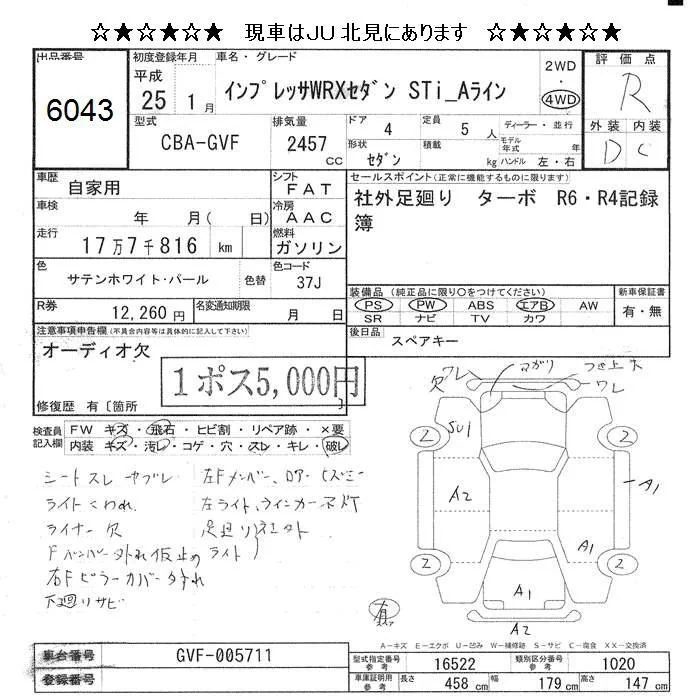 ☆★☆★☆★ 現車はJU北見にあります ☆★☆★☆★
出品番号
6043
初度登録年月
平成
25 1月
車名・グレード
インプレッサWRXセダン STi_Aライン
2WD
・
4WD
評価点
R
外装 内装
D C
型式
CBA-GVF
排気量
2457
cc
ドア
4
定員
5 人
ディーラー・並行
モデル年式 年
形状
セダン
積載
kg
ハンドル 左・右
車歴
自家用
シフト
FAT
車検
年 月( 日)
冷房
AAC
走行
17万7千816 km
燃料
ガソリン
色
サテンホワイト・パール
色替
色コード
37J
R券
12,260円
名変通知期限
月 日
セールスポイント(正常に機能するものに限ります)
社外足廻り ターボ R6・R4記録
簿
装備品(純正品に限り○をつけてください)
PS PW ABS エアB AW
SR ナビ TV カワ
新車保証書
有・無
後日品
スペアキー
注意事項申告欄(不具合内容等は具体的に記入して下さい)
オーディオ欠
1ポス5,000円
修復歴 有〔箇所 〕
検査員
記入欄
FW キズ・飛石・ヒビ割・リペア跡・×要
内装 キズ・汚レ・コゲ・穴・スレ・キレ・破レ
シートスレ ヤブレ
ライトくわれ
ライナー欠
Fバンパー外れ仮止め
右Fピラーカバー外れ
下廻りサビ
左Fメンバー、
左ライト、ウインカー不灯
足廻り
ライト
欠
ワレ
マガリ
ワレ
2
2
2
2
SU1
A2
A1
A1
A1
A2
有
A-キズ E-エクボ U-凹み W-補修跡 S-サビ C-腐食 XX-交換済
車台番号
GVF-005711
登録番号
型式指定番号
参考
16522
類別区分番号
参考
1020
車庫証明用
参考
長さ
458 cm
幅
179 cm
高さ
147 cm